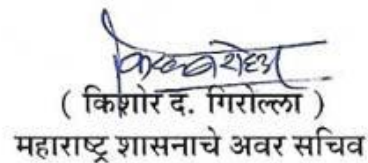 ( किशोर द. गिरोल्ला )
महाराष्ट्र शासनाचे अवर सचिव